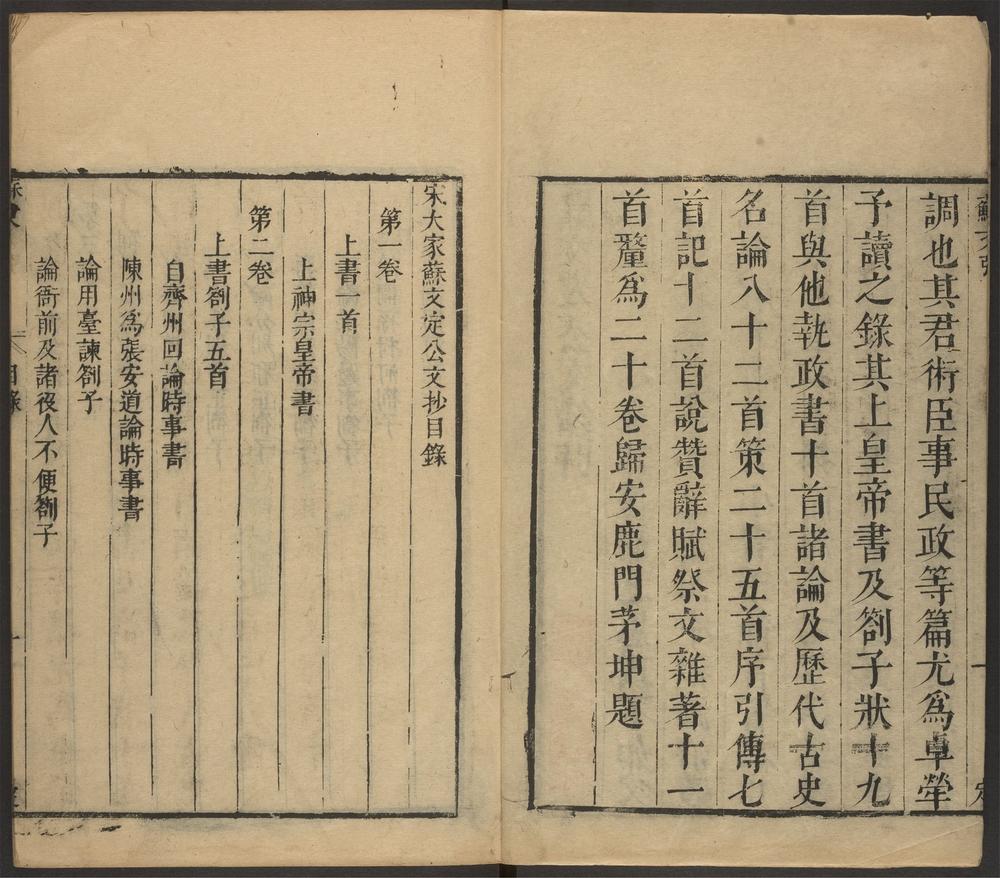 調也其君術臣事民政等篇尤爲卓犖
予讀之錄其上皇帝書及劄子狀十九
首與他執政書十首諸論及歷代古史
名論八十二首策二十五首序引傳七
首記十二首說贊辭賦祭文雜著十一
首釐爲二十卷歸安鹿門茅坤題
宋大家蘇文定公文抄目錄
第一卷
上書一首
上神宗皇帝書
第二卷
上書劄子五首
自齊州回論時事書
陳州爲張安道論時事書
論用臺諫劄子
論衙前及諸役人不便劄子